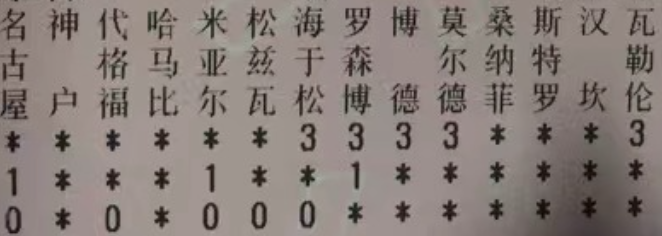 名古屋
神户
代格福
哈马比
米亚尔
松兹瓦
海于松
罗森博
博德
莫尔德
桑纳菲
斯特罗
汉坎
瓦勒伦
* * * * * * 3 3 3 3 * * * 3
1 * * * 1 * * 1 * * * * * *
0 * 0 * 0 0 0 * * * * * * *